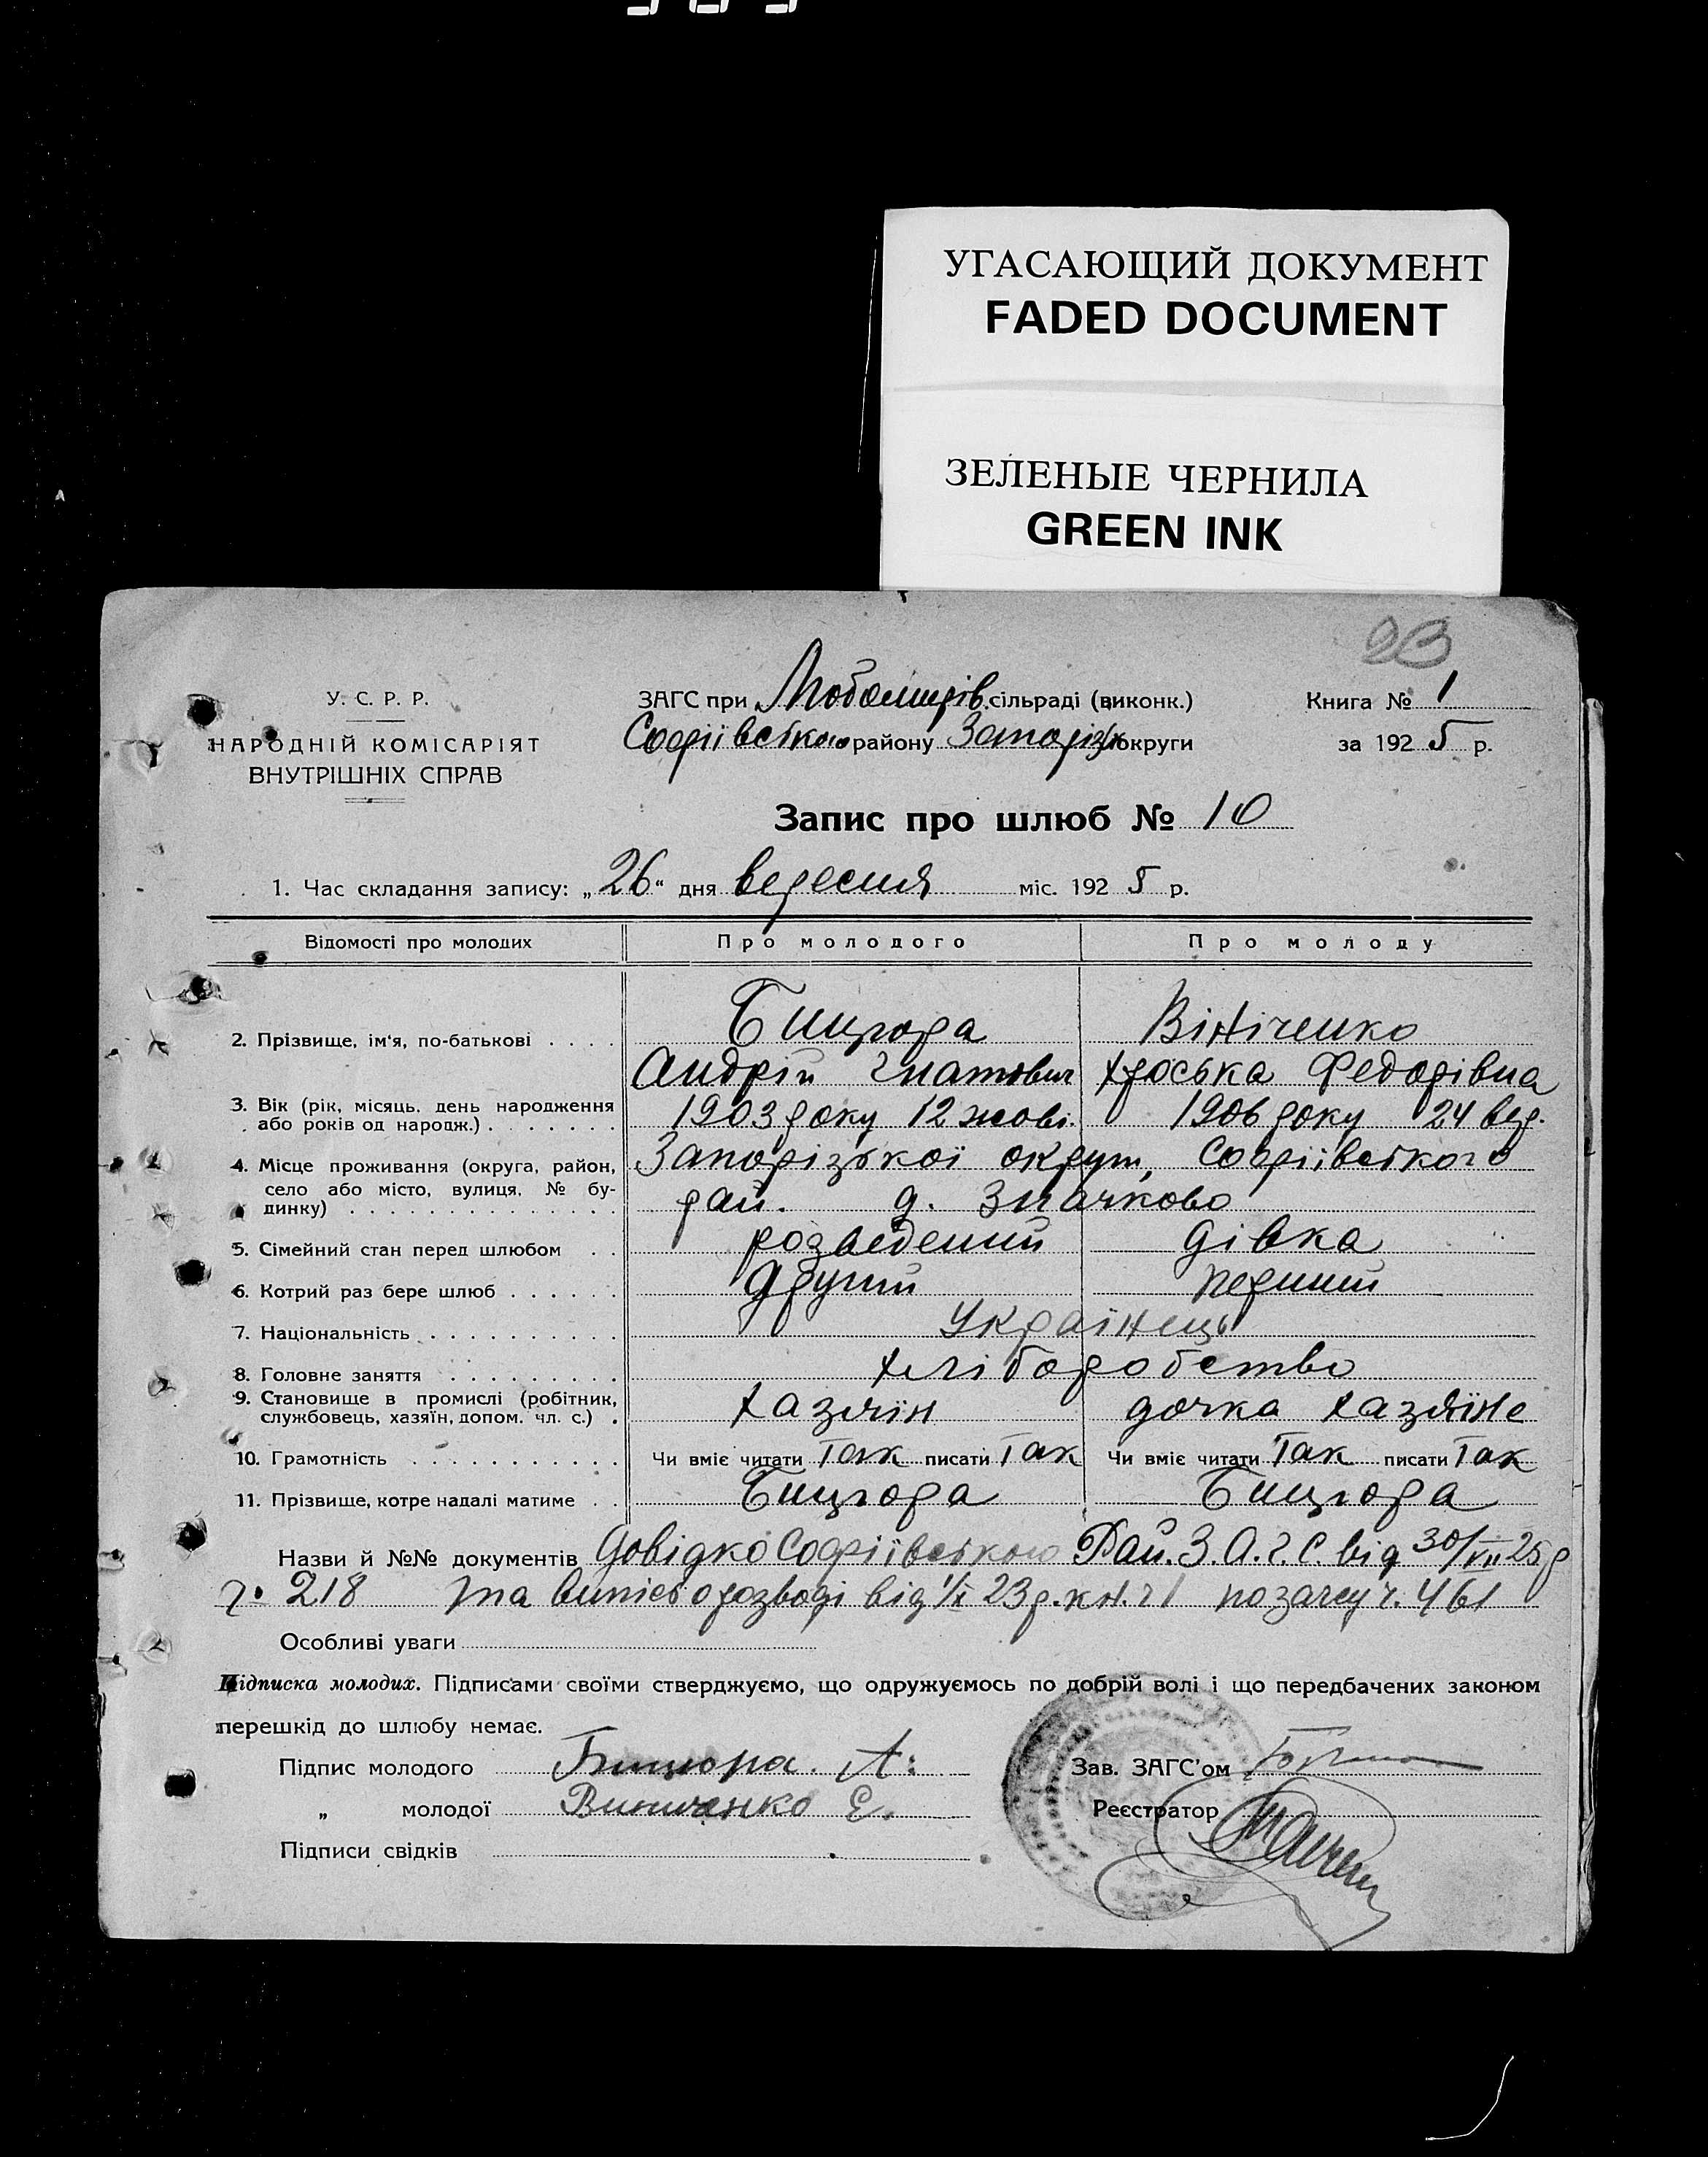 УГАСАЮЩИЙ ДОКУМЕНТ
FADED DOCUMENT
ЗЕЛЕНЫЕ ЧЕРНИЛА
GREEN INK
23
У. С. Р. Р.
НАРОДНІЙ КОМІСАРІЯТ
ВНУТРІШНІХ СПРАВ
ЗАГС при Любомирів. сільраді (виконк.)
Софіївського району Запоріз. округи
Книга № 1
за 1925 р.
Запис про шлюб № 10
1. Час складання запису: „26“ дня вересня міс. 1925 р.
Відомості про молодих Про молодого Про молоду
2. Прізвище, ім'я, по-батькові Бицюра Вініченко
Андрій Гнатович Хроська Федорівна
3. Вік (рік, місяць, день народження або років од народж.) 1903 року 12 жовт. 1906 року 24 вер.
4. Місце проживання (округа, район, село або місто, вулиця, № будинку) Запорізької округи, Софіївського
рай. д. Значково
5. Сімейний стан перед шлюбом розведений дівка
6. Котрий раз бере шлюб другий перший
7. Національність Українець
8. Головне заняття хліборобство
9. Становище в промислі (робітник, службовець, хазяїн, допом. чл. с.) хазяїн дочка хазяїне
10. Грамотність Чи вміє читати Так писати Так Чи вміє читати Так писати Так
11. Прізвище, котре надалі матиме Бицюра Бицюра
Назви й №№ документів Довідко Софіївського Рай. З.А.Г.С. від 30/VII 25 р
ч. 218 та випісь о розводі від 1/X 23 р. кн. ч 1 по загсу ч. 461
Особливі уваги
Підписка молодих. Підписами своїми стверджуємо, що одружуємось по добрій волі і що передбачених законом
перешкід до шлюбу немає.
Підпис молодого Бицюра. А:
„ молодої Виниченко Е.
Підписи свідків
Зав. ЗАГС'ом
Реєстратор